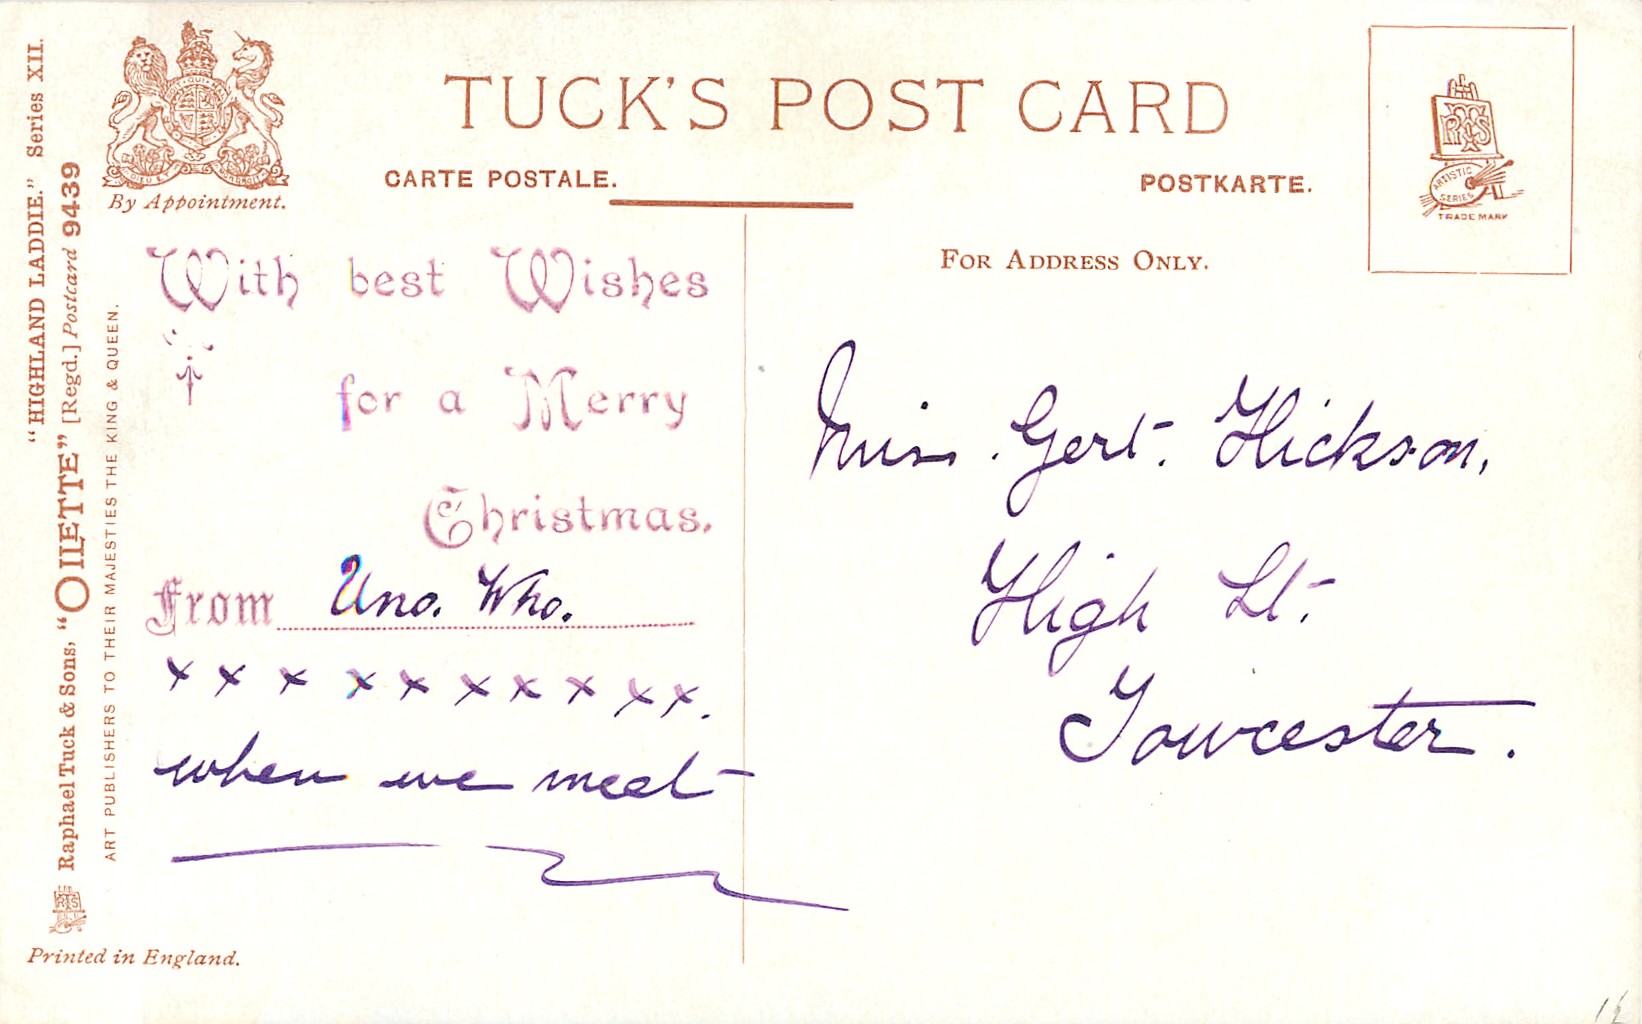 "HIGHLAND LADDIE." Series XII.
Raphael Tuck & Sons, "OILETTE" [Regd.] Postcard 9439
ART PUBLISHERS TO THEIR MAJESTIES THE KING & QUEEN.
By Appointment.
TUCK'S POST CARD
CARTE POSTALE.
POSTKARTE.
ARTISTIC
SERIES
TRADE MARK
FOR ADDRESS ONLY.
With best Wishes
for a Merry
Christmas.
From Uno. Who.
x x x x x x x x x x.
when we meet
Miss. Gert. Hickson,
High St.
Towcester.
Printed in England.